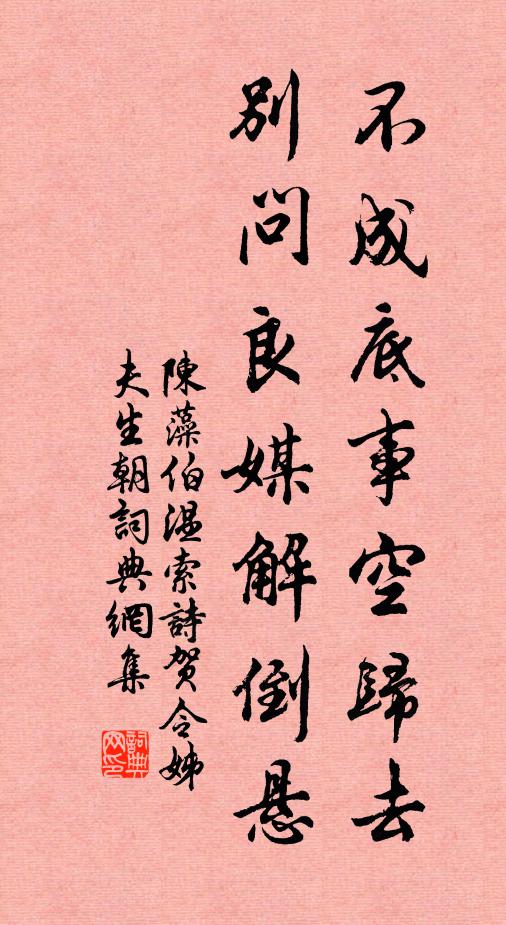 不成底事空歸去
別問良媒解倒懸
陳藻伯温索詩賀令姊
夫生朝詞典網集
詞典網印